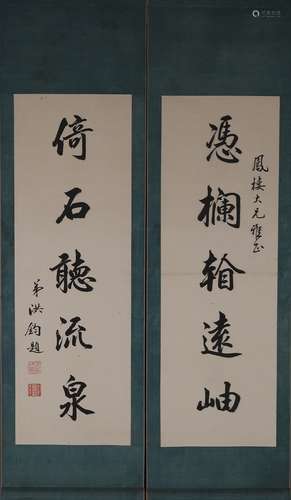 憑欄翰遠岫
鳳樓大兄雅正
倚石聽流泉
弟洪鈞題